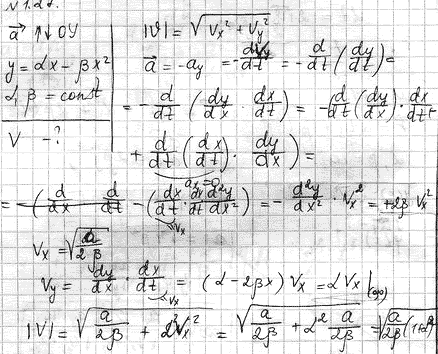 N 1.21.
a⃗ ↑↓ OY
y = αx - βx²
α, β = const
V - ?
|V| = √(Vx² + Vy²)
a⃗ = -ay = -dVy/dt = -d/dt (dy/dt) =
= -d/dt (dy/dx · dx/dt) = -(d/dt (dy/dx) · dx/dt +
+ d/dt (dx/dt) · dy/dx) =
ax = 0
= - (dx/dt dx/dt d²y/dx²) = - d²y/dx² · Vx² = +2β Vx²
Vx
Vx = √(a/2β)
Vy = dy/dx · dx/dt = (α - 2βx) Vx = αVx |(0;0)
Vx
|V| = √(a/2β + α²Vx²) = √(a/2β + α² a/2β) = √(a/2β (1+α²))